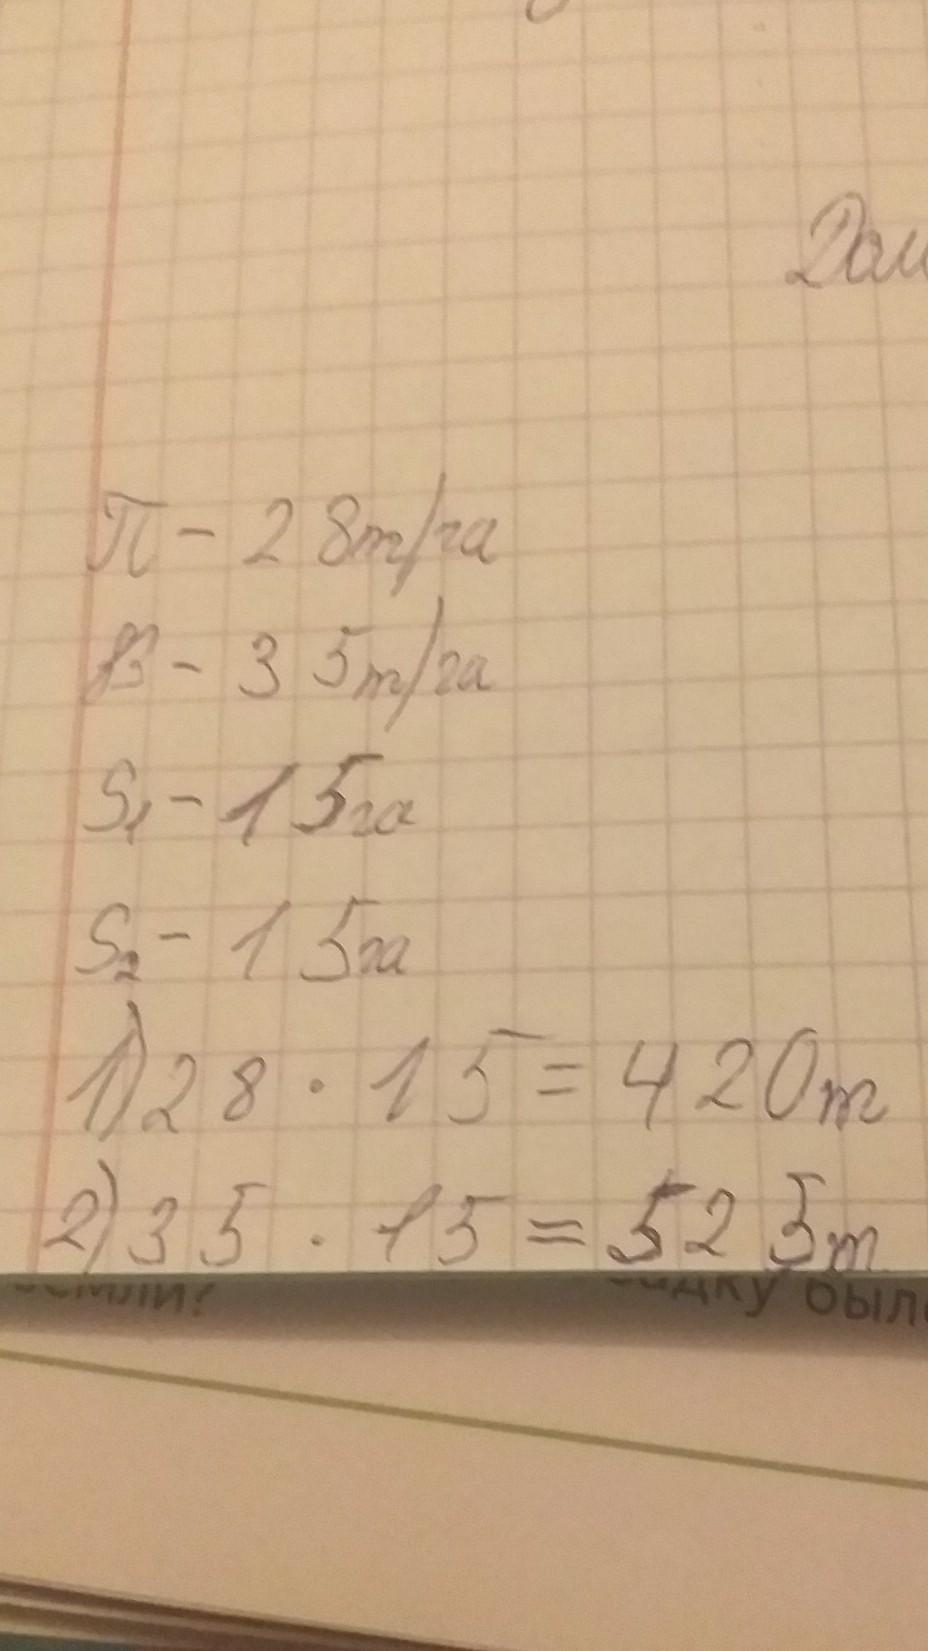 Дом
П - 28т/га
В - 35т/га
S₁ - 15га
S₂ - 15га
1) 28 · 15 = 420т
2) 35 · 15 = 525т
земли? садку было